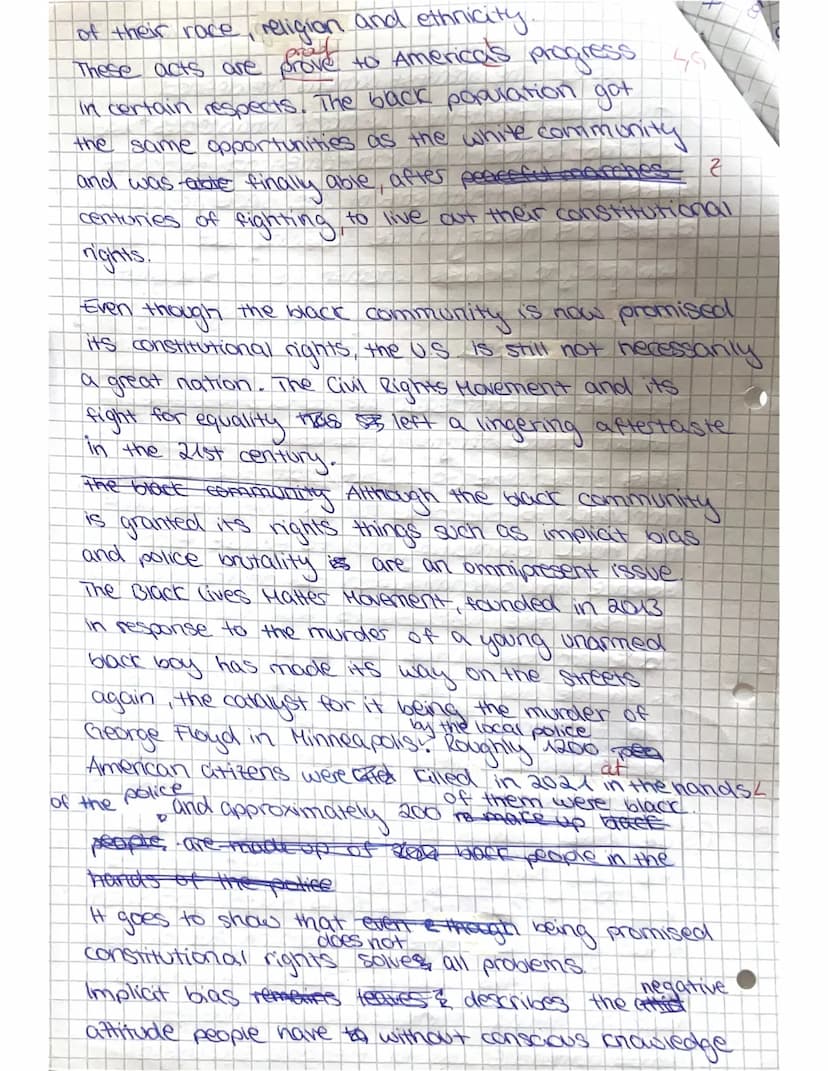 of their race, religion and ethnicity.
proof
These acts are prove to America's progress
in certain respects. The black population got
the same opportunities as the white community
and was able finally able, after peaceful marches ?
centuries of fighting, to live out their constitutional
rights.
Even though the black community is now promised
its constitutional rights, the US is still not necessarily
a great nation. The Civil Rights Movement and its
fight for equality has left a lingering aftertaste
in the 21st century.
The black community Although the black community
is granted its rights things such as implicit bias
and police brutality is are an omnipresent issue
The Black Lives Matter Movement, founded in 2013
in response to the murder of a young unarmed
black boy has made its way on the streets
again, the catalyst for it being the murder of
by the local police
George Floyd in Minneapolis. Roughly 1200
at
American citizens were killed in 2021 in the hands
of the police and approximately 200 of them were black.
make up black
people are made up of black people in the
hands of the police
It goes to show that even though being promised
does not
constitutional rights solves all problems.
negative
Implicit bias remains leaves describes the
attitude people have to without conscious knowledge